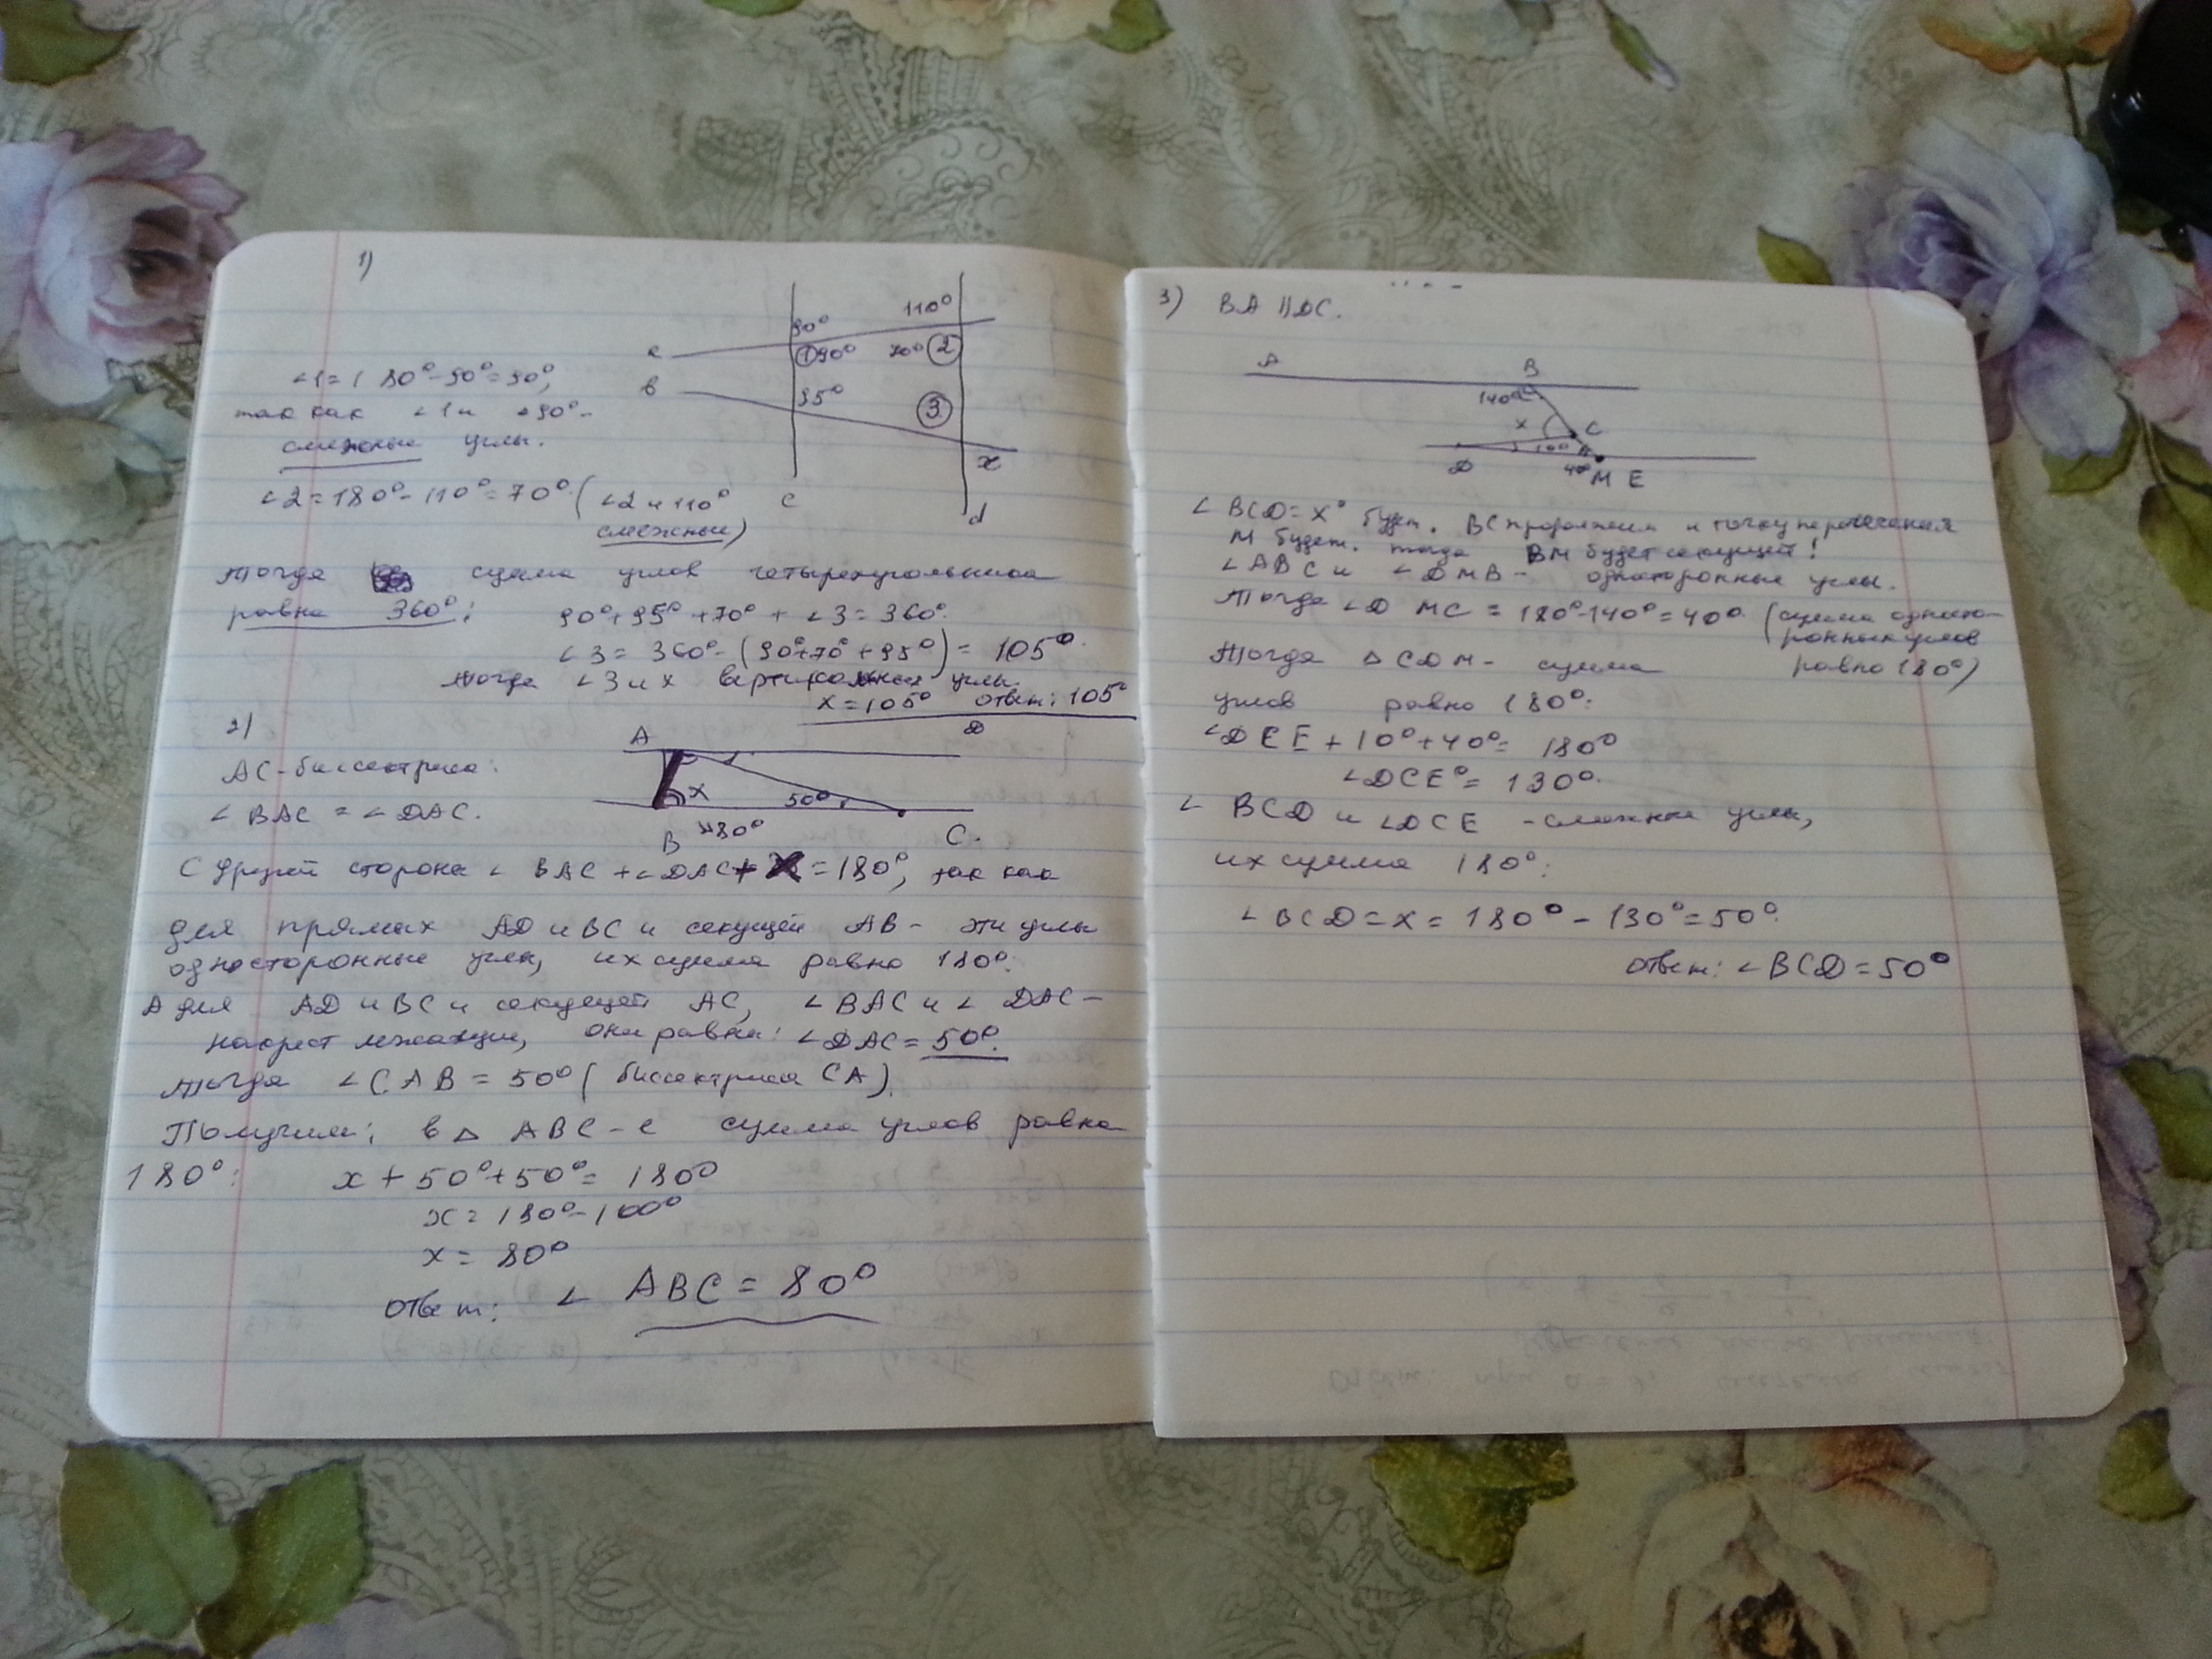 1)
90° 110°
a ①90° 70°②
∠1=180°-90°=90°,
в 95° ③
так как ∠1 и 90° -
смежные углы.
x
∠2=180°-110°=70° (∠2 и 110°
смежные)
c d
Тогда сумма углов четырехугольника
равна 360°:
90°+95°+70°+∠3=360°.
∠3=360°-(90°+70°+95°)=105°.
тогда ∠3 и x вертикальные углы.
x=105° ответ: 105°
2)
A D
AC-биссектриса:
x 50°
∠BAC=∠DAC.
B 80° C.
С другой стороны ∠BAC+∠DAC+X=180°, так как
для прямых AD и BC и секущей AB- эти углы
односторонные углы, их сумма равно 180°:
А для AD и BC и секущей AC, ∠BAC и ∠DAC-
накрест лежащие, они равны: ∠DAC=50°.
Тогда ∠CAB=50° (биссектриса CA).
Получим: в △ABC-е сумма углов равна
180°: x+50°+50°=180°
x=180°-100°
x=80°
ответ: ∠ABC=80°
3) BA||DC.
A B
140°
x C
10°
D 40° M E
∠BCD=x° будет. BC продолжим и точку пересечения
M будет. тогда BM будет секущей!
∠ABC и ∠DMB- односторонные углы.
Тогда ∠DMC=180°-140°=40° (сумма односто-
ронных углов
равно 180°)
Тогда △CDM- сумма
углов равно 180°:
∠DCE+10°+40°=180°
∠DCE°=130°.
∠BCD и ∠DCE -смежные углы,
их сумма 180°:
∠BCD=x=180°-130°=50°.
ответ: ∠BCD=50°